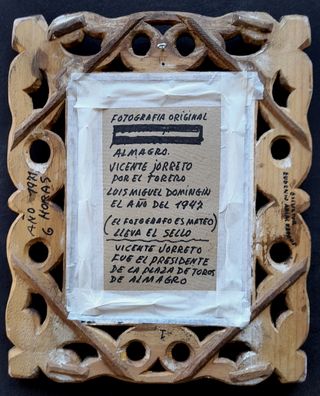 FOTOGRAFIA ORIGINAL
ALMAGRO.
VICENTE JORRETO
POR EL TORERO
LOIS MIGUEL DOMINGIN
EL AÑO DEL 1947
(EL FOTOGRAFO ES MATEO)
LLEVA EL SELLO
VICENTE JORRETO
FUE EL PRESIDENTE
DE LA PLAZA DE TOROS
DE ALMAGRO
AÑO 1971
6 HORAS